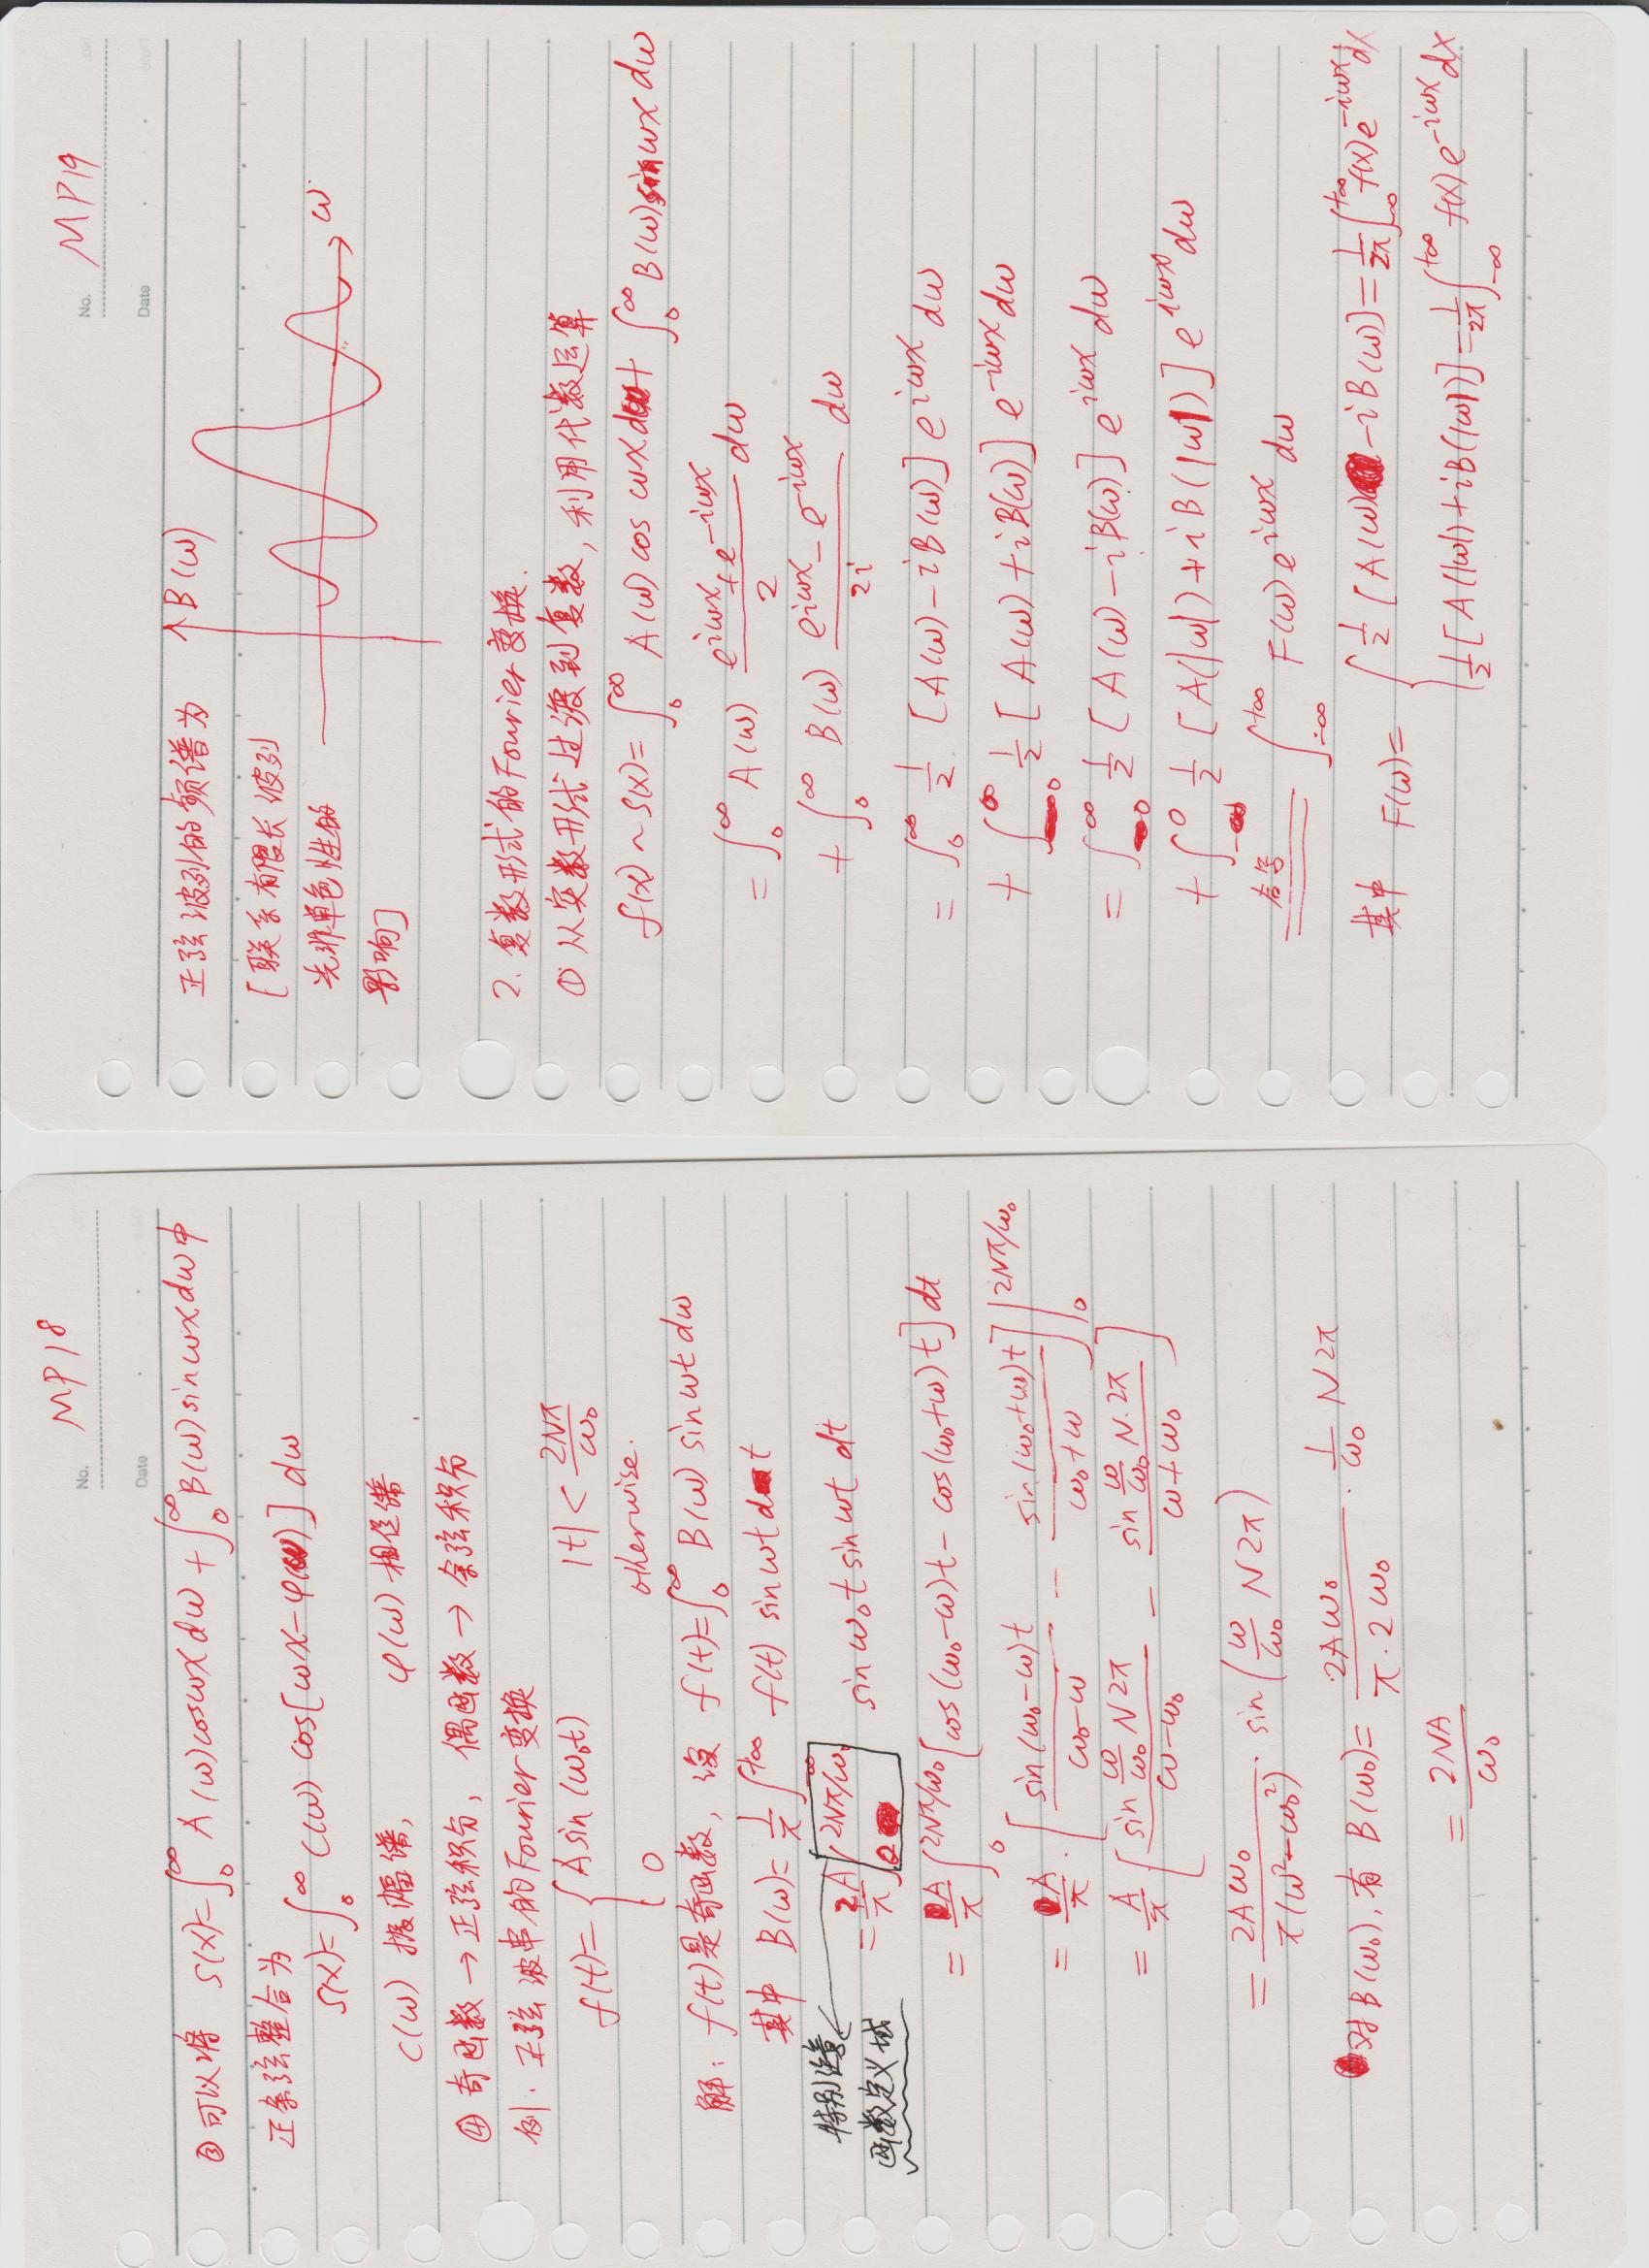 No. MP18
Date
③可以将 S(x)=∫₀^∞ A(ω)cosωx dω + ∫₀^∞ B(ω)sinωx dω中
正余弦整合为
S(x)=∫₀^∞ C(ω) cos[ωx-φ(ω)] dω
C(ω) 振幅谱, φ(ω) 相位谱
④ 奇函数 → 正弦积分, 偶函数 → 余弦积分
例. 正弦波串的Fourier变换
f(t)= { A sin(ω₀t) |t| < 2Nπ/ω₀
0 otherwise.
解: f(t)是奇函数, 设 f(t)=∫₀^∞ B(ω) sinωt dω
其中 B(ω)= 1/π ∫_{-∞}^{+∞} f(t) sinωt dt
特别注意
函数定义域
= 2A/π ∫₀^{2Nπ/ω₀} sinω₀t sinωt dt
= A/π ∫₀^{2Nπ/ω₀} [cos(ω₀-ω)t - cos(ω₀+ω)t] dt
= A/π · [ sin(ω₀-ω)t / (ω₀-ω) - sin(ω₀+ω)t / (ω₀+ω) ] |₀^{2Nπ/ω₀}
= A/π [ sin ω/ω₀ N2π / (ω-ω₀) - sin ω/ω₀ N·2π / (ω+ω₀) ]
= 2Aω₀ / π(ω²-ω₀²) · sin(ω/ω₀ N2π)
对B(ω₀), 有 B(ω₀)= 2Aω₀ / π·2ω₀ · 1/ω₀ N2π
= 2NA/ω₀
No. MP19
Date
正弦波列的频谱为
[联系有限长波列
光非单色性的
影响]
B(ω)
ω
2. 复数形式的Fourier变换.
① 从实数形式过渡到复数, 利用代数运算
f(x) ~ S(x)= ∫₀^∞ A(ω) cos ωx dω + ∫₀^∞ B(ω) sin ωx dω
= ∫₀^∞ A(ω) (e^{iωx}+e^{-iωx})/2 dω
+ ∫₀^∞ B(ω) (e^{iωx}-e^{-iωx})/2i dω
= ∫₀^∞ 1/2 [A(ω)-iB(ω)] e^{iωx} dω
+ ∫₀^∞ 1/2 [A(ω)+iB(ω)] e^{-iωx} dω
= ∫₀^∞ 1/2 [A(ω)-iB(ω)] e^{iωx} dω
+ ∫_{-∞}^0 1/2 [A(|ω|)+iB(|ω|)] e^{iωx} dω
合写 ∫_{-∞}^{+∞} F(ω)e^{iωx} dω
其中 F(ω)= { 1/2 [A(ω)-iB(ω)] = 1/2π ∫_{-∞}^{+∞} f(x)e^{-iωx} dx
1/2 [A(|ω|)+iB(|ω|)] = 1/2π ∫_{-∞}^{+∞} f(x)e^{-iωx} dx